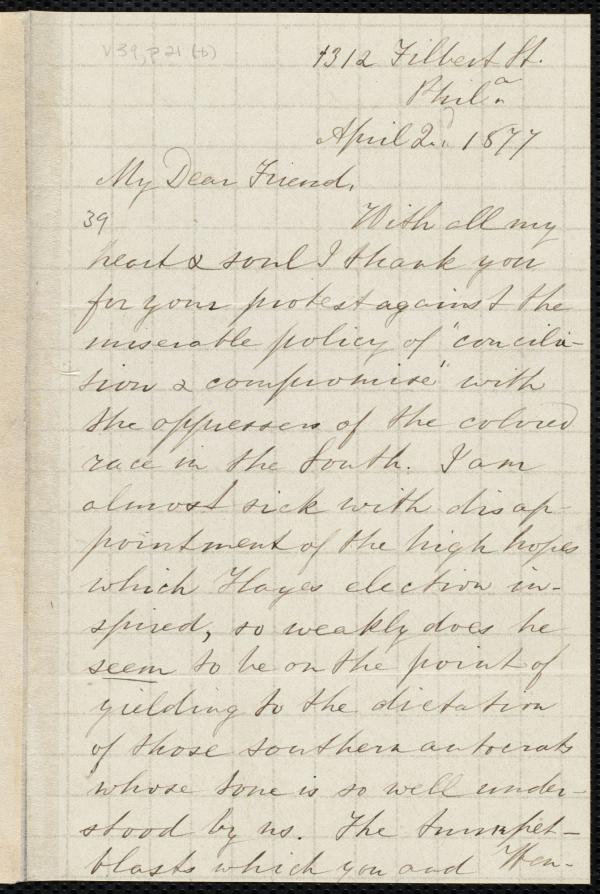 V39, p21 (b)
1312 Filbert St.
Phila.
April 2d. 1877
My Dear Friend,
39
With all my
heart & soul I thank you
for your protest against the
miserable policy of "concilia-
tion & compromise" with
the oppressers of the colored
race in the South. I am
almost sick with disap-
pointment of the high hopes
which Hayes election in-
spired, so weakly does he
seem to be on the point of
yielding to the dictation
of those southern autocrats
whose tone is so well under-
stood by us. The trumpet-
blasts which you and Wen-